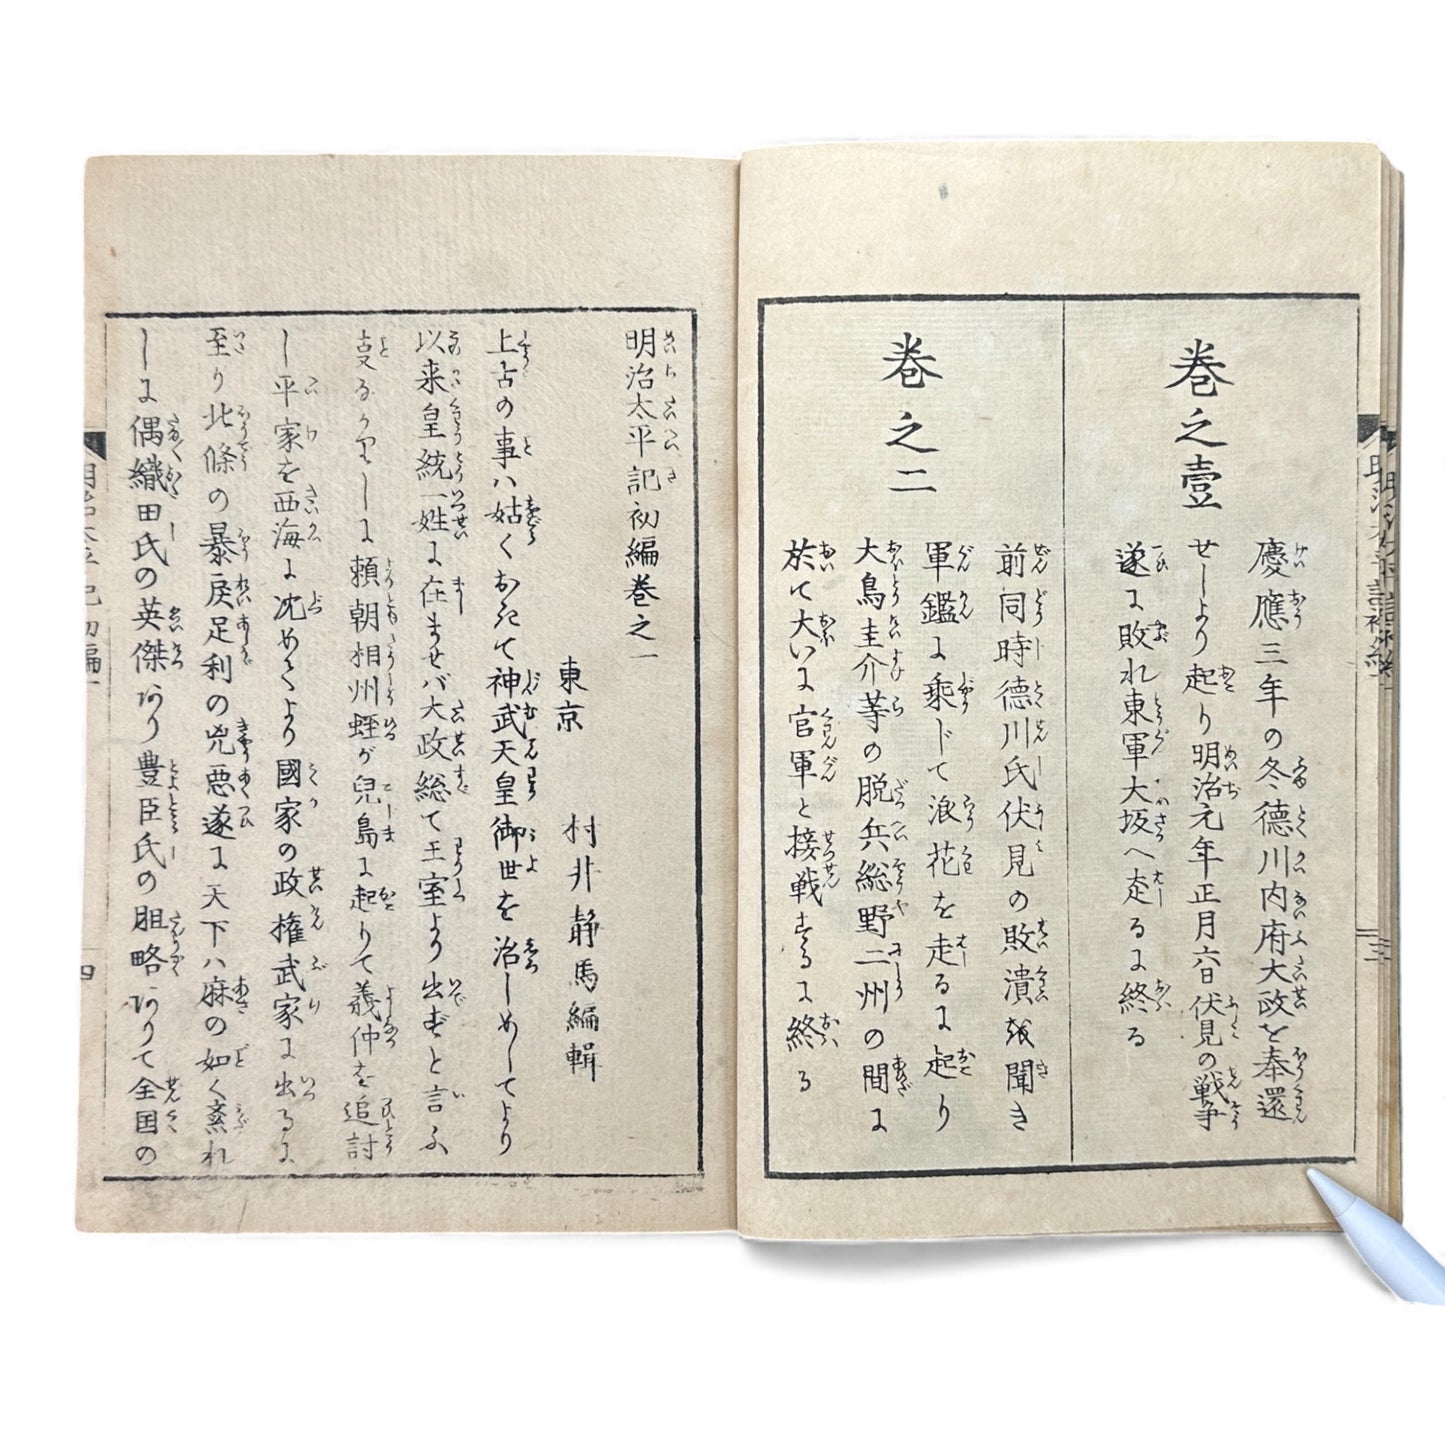 巻之壹
慶應三年の冬德川内府大政を奉還
せしより起り明治元年正月六日伏見の戦争
遂に敗れ東軍大坂へ走るに終る
巻之二
前同時德川氏伏見の敗潰を聞き
軍鑑に乗じて浪花を走るに起り
大鳥圭介等の脱兵総野二州の間に
於て大いに官軍と接戦するに終る
明治太平記初編巻之一
東京　村井静馬編輯
上古の事ハ姑くおきて神武天皇御世を治しめしてより
以来皇統一姓に在ませバ大政総て王室より出ずと言ふ
㕝なかりしに頼朝相州蛭が兒島に起りて義仲を追討
し平家を西海に沈めしより國家の政権武家に出るに
至り北條の暴戻足利の兇惡遂に天下ハ麻の如く紊れ
しに偶織田氏の英傑ありり豊臣氏の胆略ありて全国の
明治太平記初編一
四
三